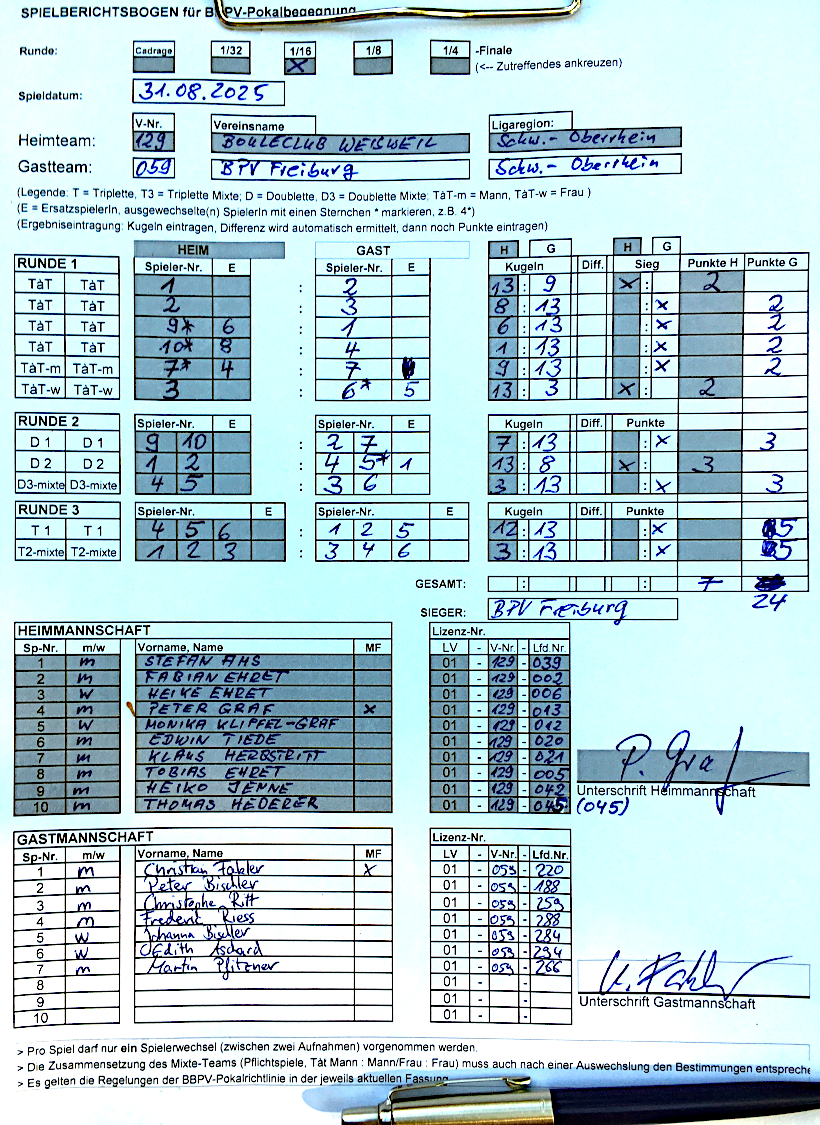 SPIELBERICHTSBOGEN für BBPV-Pokalbegegnung
Runde: Cadrage 1/32 1/16 1/8 1/4 -Finale
X (<-- Zutreffendes ankreuzen)
Spieldatum: 31.08.2025
V-Nr. Vereinsname Ligaregion:
Heimteam: 129 BOULECLUB WEISWEIL Schw.- Oberrhein
Gastteam: 059 BPV Freiburg Schw.- Oberrhein
(Legende: T = Triplette, T3 = Triplette Mixte; D = Doublette, D3 = Doublette Mixte; TàT-m = Mann, TàT-w = Frau )
(E = ErsatzspielerIn, ausgewechselte(n) SpielerIn mit einen Sternchen * markieren, z.B. 4*)
(Ergebniseintragung: Kugeln eintragen, Differenz wird automatisch ermittelt, dann noch Punkte eintragen)
HEIM GAST H G H G
RUNDE 1 Spieler-Nr. E Spieler-Nr. E Kugeln Diff. Sieg Punkte H Punkte G
TàT TàT 1 : 2 13 : 9 X : 2
TàT TàT 2 : 3 8 : 13 : X 2
TàT TàT 9* 6 : 1 6 : 13 : X 2
TàT TàT 10* 8 : 4 1 : 13 : X 2
TàT-m TàT-m 7* 4 : 7 9 : 13 : X 2
TàT-w TàT-w 3 : 6* 5 13 : 3 X : 2
RUNDE 2 Spieler-Nr. E Spieler-Nr. E Kugeln Diff. Punkte
D 1 D 1 9 10 : 2 7 7 : 13 : X 3
D 2 D 2 1 2 : 4 5* 1 13 : 8 X : 3
D3-mixte D3-mixte 4 5 : 3 6 3 : 13 : X 3
RUNDE 3 Spieler-Nr. E Spieler-Nr. E Kugeln Diff. Punkte
T 1 T 1 4 5 6 : 1 2 5 12 : 13 : X 5
T2-mixte T2-mixte 1 2 3 : 3 4 6 3 : 13 : X 5
GESAMT: : : 7
24
SIEGER: BPV Freiburg
HEIMMANNSCHAFT Lizenz-Nr.
Sp-Nr. m/w Vorname, Name MF LV - V-Nr. - Lfd.Nr.
1 m STEFAN AMS 01 - 129 - 039
2 m FABIAN EHRET 01 - 129 - 002
3 W HEIKE EHRET 01 - 129 - 006
4 m PETER GRAF X 01 - 129 - 013
5 W MONIKA KLIPFEL-GRAF 01 - 129 - 012
6 m EDWIN TIEDE 01 - 129 - 020
7 m KLAUS HERBSTRITT 01 - 129 - 021
8 m TOBIAS EHRET 01 - 129 - 005
9 m HEIKO JENNE 01 - 129 - 042
10 m THOMAS HEDERER 01 - 129 - 045
P. Graf
Unterschrift Heimmannschaft
(045)
GASTMANNSCHAFT Lizenz-Nr.
Sp-Nr. m/w Vorname, Name MF LV - V-Nr. - Lfd.Nr.
1 m Christian X 01 - 059 - 220
2 m Peter Bischler 01 - 059 - 188
3 m Christophe Ritt 01 - 059 - 259
4 m Frederic Riess 01 - 059 - 288
5 W Johanna Bischler 01 - 059 - 284
6 W Edith 01 - 059 - 294
7 m Martin Pfitzner 01 - 059 - 266
8 01 - -
9 01 - -
10 01 - -
Unterschrift Gastmannschaft
> Pro Spiel darf nur ein Spielerwechsel (zwischen zwei Aufnahmen) vorgenommen werden.
> Die Zusammensetzung des Mixte-Teams (Pflichtspiele, Tàt Mann : Mann/Frau : Frau) muss auch nach einer Auswechslung den Bestimmungen entspreche
> Es gelten die Regelungen der BBPV-Pokalrichtlinie in der jeweils aktuellen Fassung